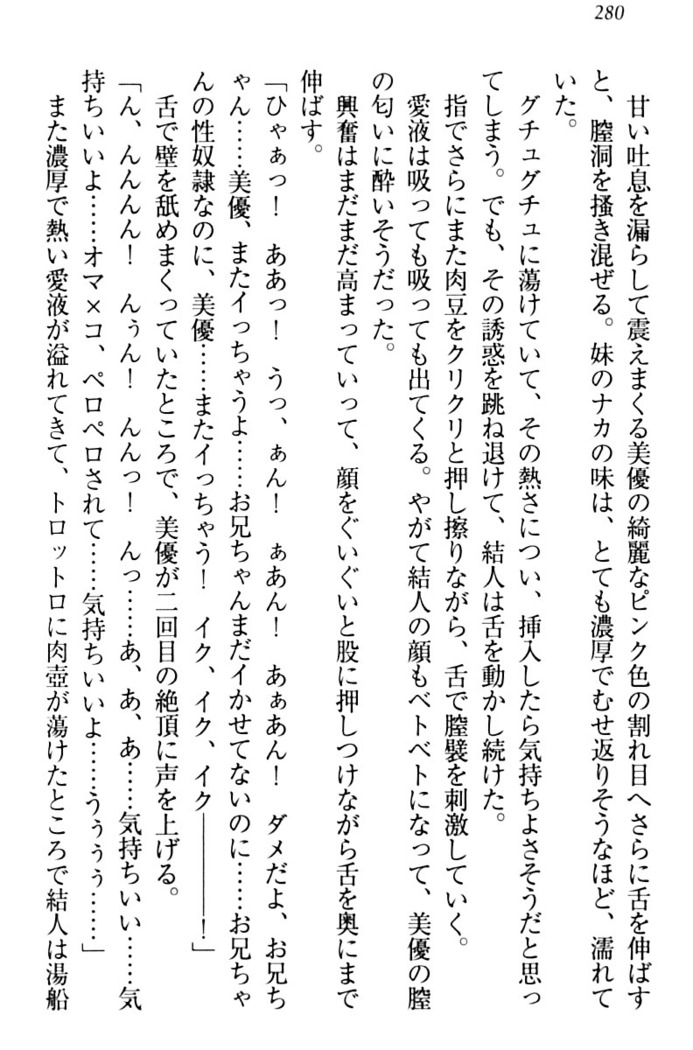 280
甘い吐息を漏らして震えまくる美優の綺麗なピンク色の割れ目へさらに舌を伸ばす
と、膣洞を掻き混ぜる。妹のナカの味は、とても濃厚でむせ返りそうなほど、濡れて
いた。
グチュグチュに蕩けていて、その熱さについ、挿入したら気持ちよさそうだと思っ
てしまう。でも、その誘惑を跳ね退けて、結人は舌を動かし続けた。
指でさらにまた肉豆をクリクリと押し擦りながら、舌で膣襞を刺激していく。
愛液は吸っても吸っても出てくる。やがて結人の顔もベトベトになって、美優の膣
の匂いに酔いそうだった。
興奮はまだまだ高まっていって、顔をぐいぐいと股に押しつけながら舌を奥にまで
伸ばす。
「ひゃぁっ！　ああっ！　うっ、ぁん！　ぁあん！　あぁあん！　ダメだよ、お兄ち
ゃん……美優、またイっちゃうよ……お兄ちゃんまだイかせてないのに……お兄ちゃ
んの性奴隷なのに、美優……またイっちゃう！　イク、イク、イク――――！」
舌で壁を舐めまくっていたところで、美優が二回目の絶頂に声を上げる。
「ん、んんんん！　んぅん！　んんっ！　んっ……あ、あ、あ……気持ちいい……気
持ちいいよ……オマ×コ、ペロペロされて……気持ちいいよ……うぅぅぅ……」
また濃厚で熱い愛液が溢れてきて、トロットロに肉壺が蕩けたところで結人は湯船